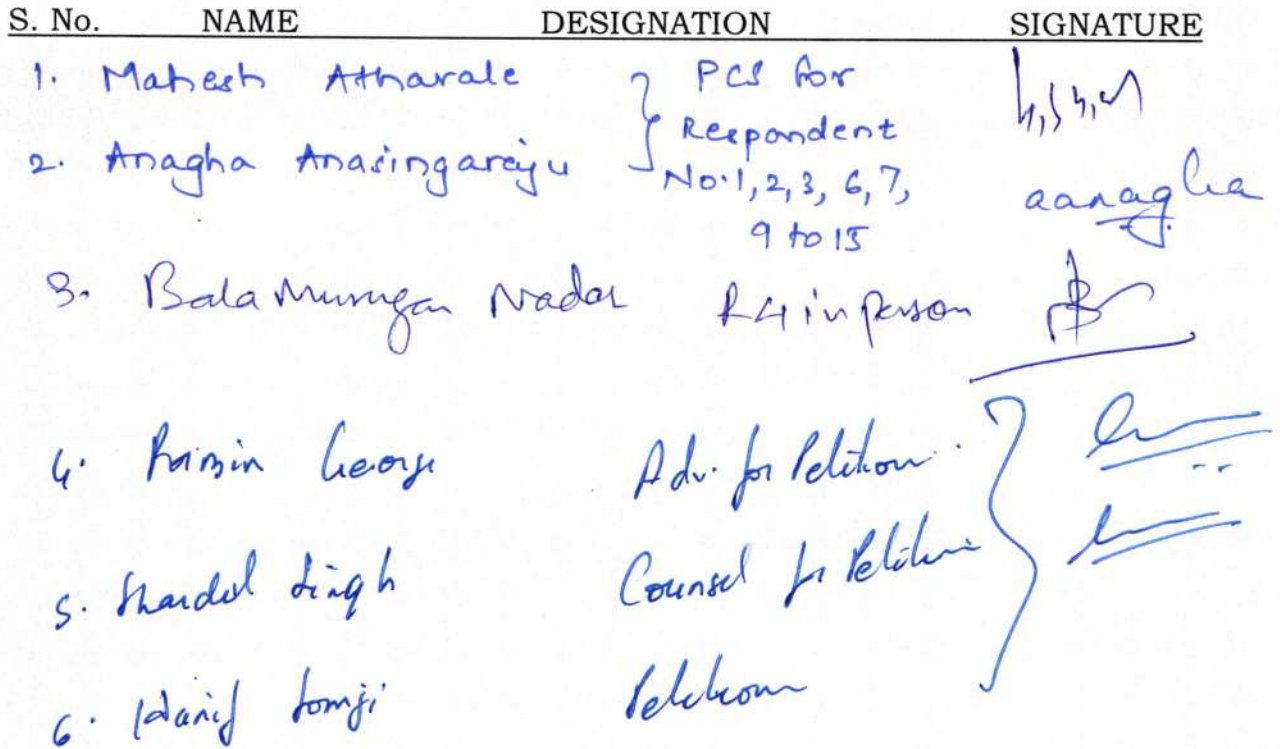 S. No. NAME DESIGNATION SIGNATURE
1. Mahesh Atharale PCS for
Respondent
2. Anagha Anasingaraju No. 1, 2, 3, 6, 7,
9 to 15
aanagha
3. Bala Murugan Nadar R4 in person
4. George Adv. for Petitioner
5. Shardul Singh Counsel for Petitioner
6. Hanif Somji Petitioner